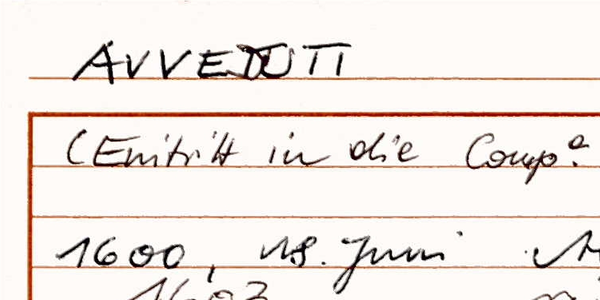 AVVEDUTI
(Einitritt in die Comp.ᵃ
1600, 18. Juni
1603